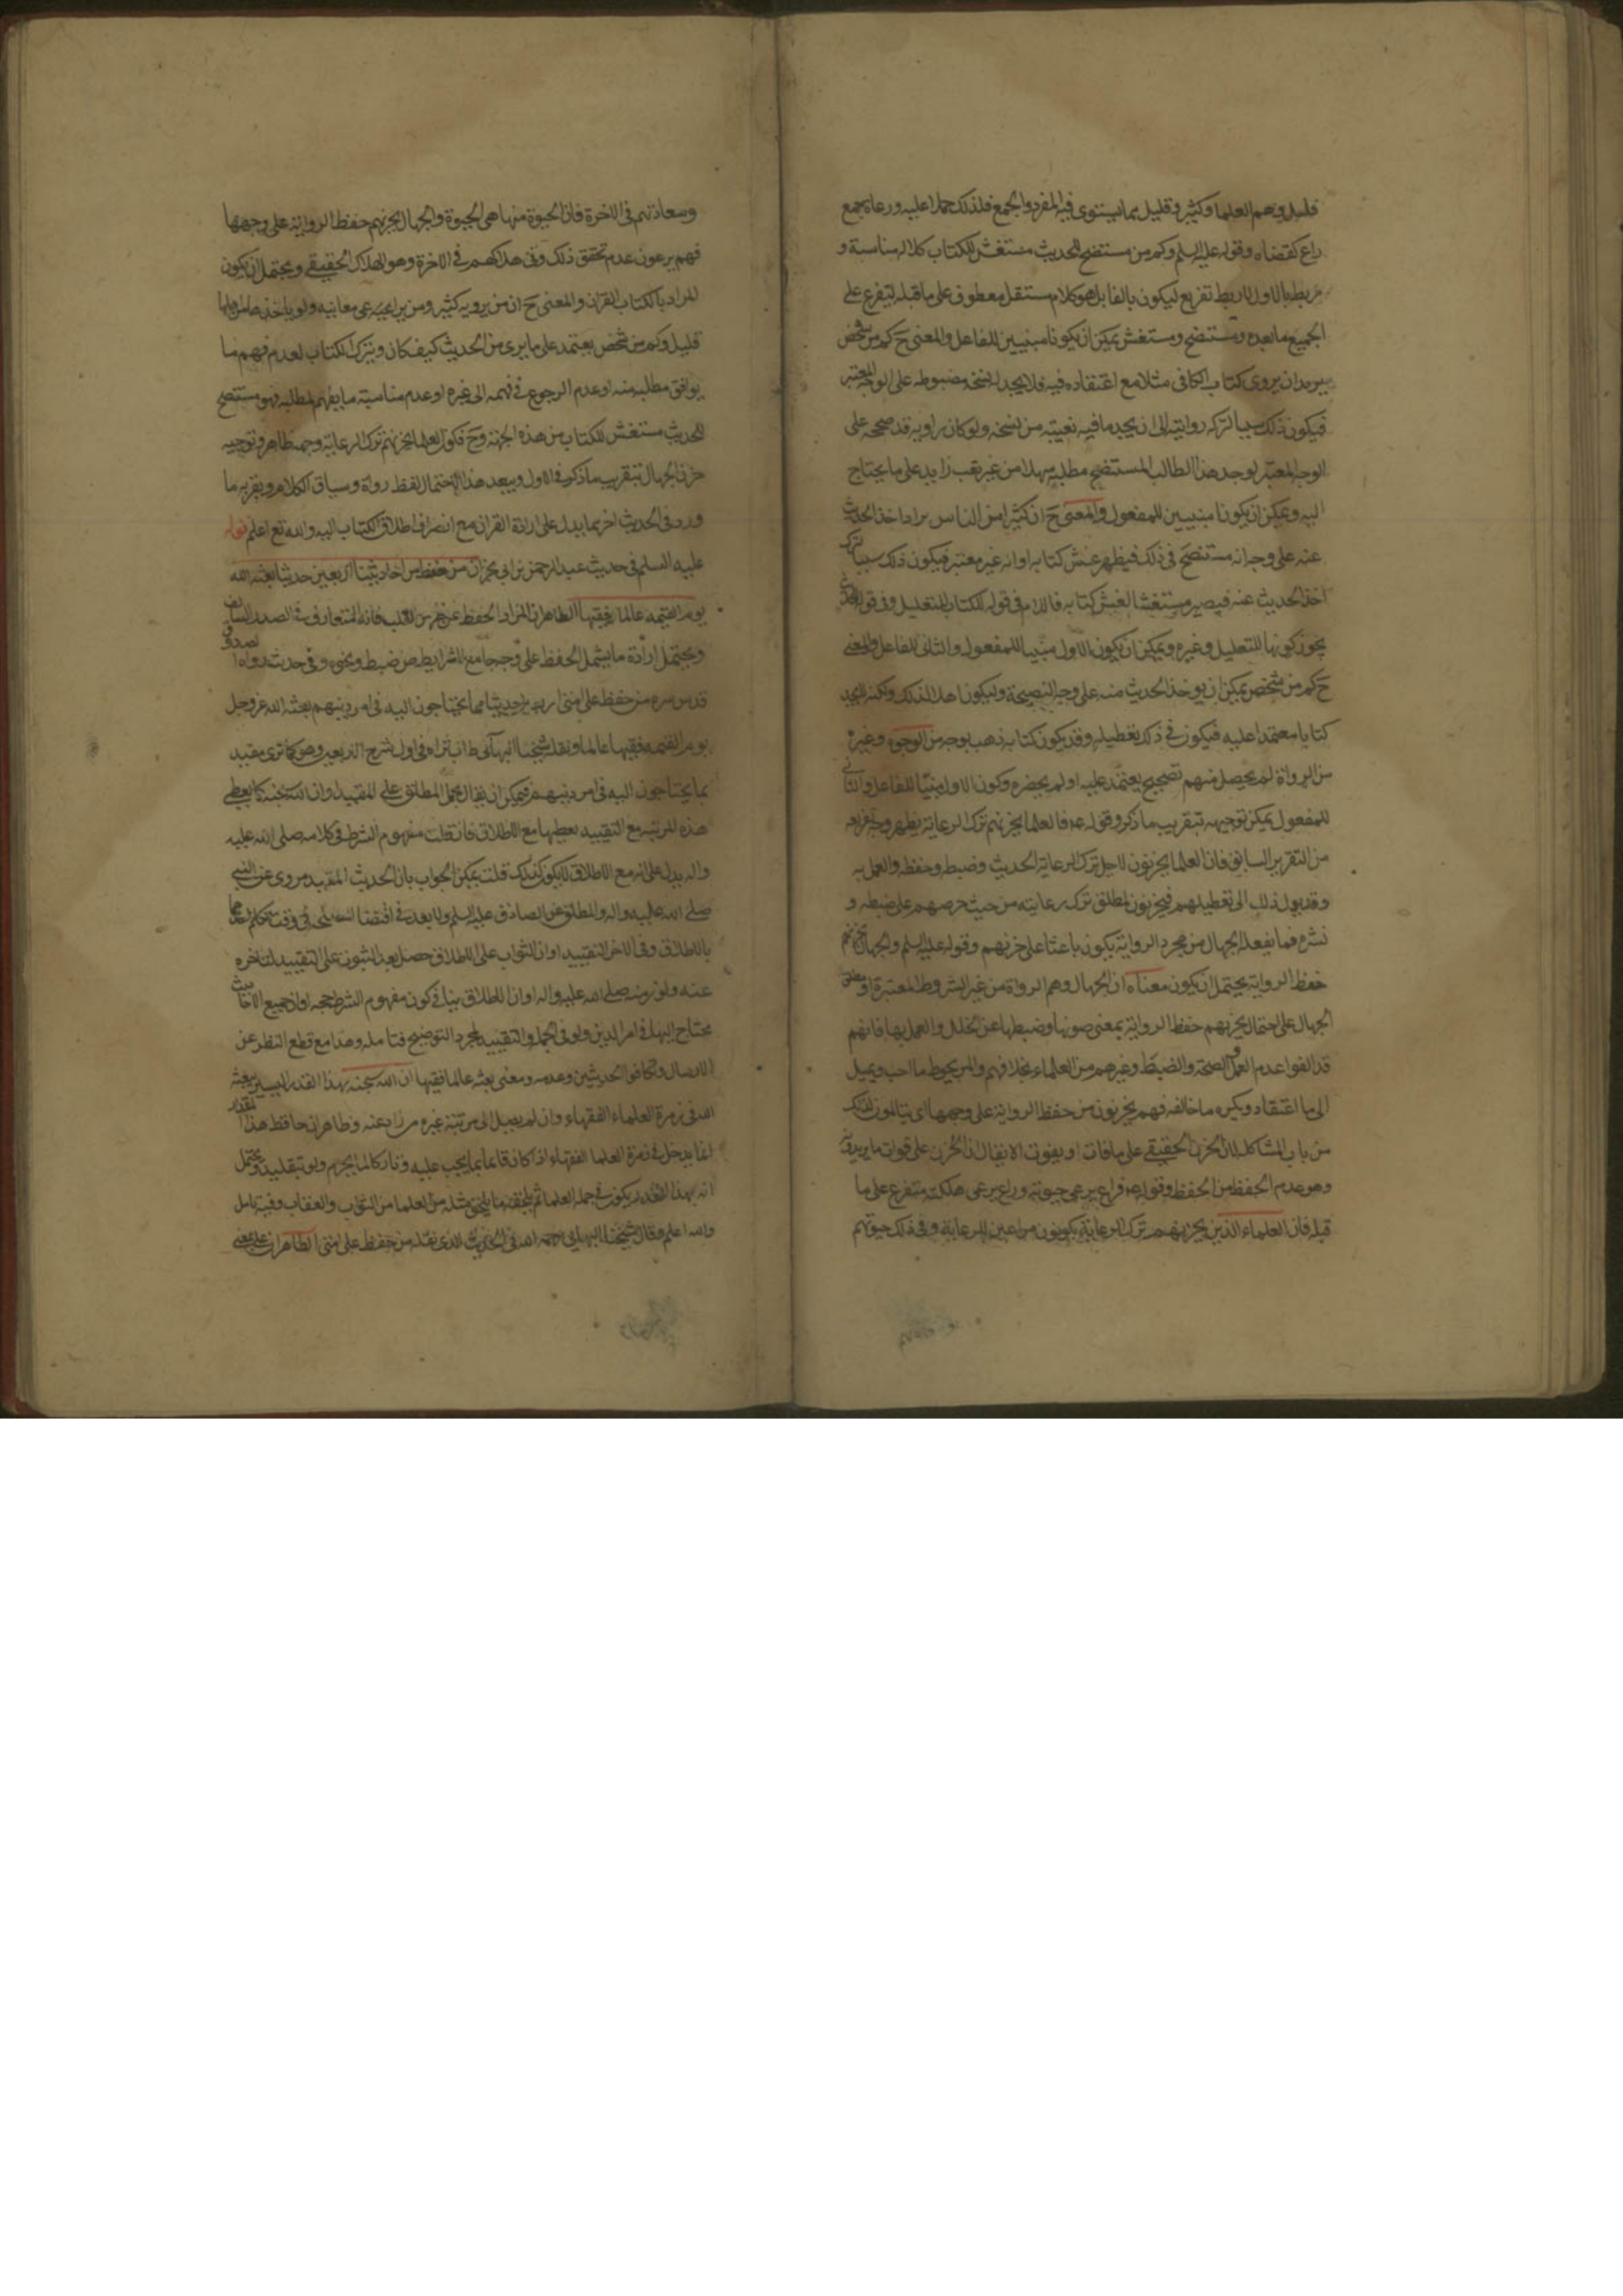 قليل وهم العلما وكثير وقليل مما يستوى فيه المفرد والجمع فلذلك حملا عليه ورعاة جمع
راع كقضاه وقوله عليه السلم وكم من مستنصح للحديث مستغش للكتاب كلاله مناسبة و
ربط بالاول لاربط تفريع ليكون بالفا بل هو كلام مستقل معطوف على ما قبله ليتفرع على
الجميع ما بعده ومستنصح ومستغش يمكن ان يكونا مبنيين للفاعل والمعنى ح كم من شخص
يريد ان يروى كتاب الكافى مثلا مع اعتقاده فيه فلا يجد نسخة مضبوطه على الوجه المعتبر
فيكون ذلك سببا لتركه روايته الى ان يجد ما فيه بغيته من نسخه ولو كان راويه قد صححه على
الوجه المعتبر لوجد هذا الطالب المستنصح مطلبه سهلا من غير تعب زايد على ما يحتاج
اليه ويمكن ان يكونا مبنيين للمفعول والمعنى ح ان كثيرا من الناس يراد اخذ الحديث
عنه على وجه انه مستنصح فى ذلك فيظهر غش كتابه او انه غير معتبر فيكون ذلك سببا لترك
اخذ الحديث عنه فيصير مستغشا لغش كتابه فاللام فى قوله للكتاب للتعليل وفى قوله للحديث
يجوز كونها للتعليل وغيره ويمكن ان يكون الاول مبنيا للمفعول والثانى للفاعل والمعنى
ح كم من شخص يمكن ان يوخذ الحديث منه على وجه النصيحة وليكون اهلا لذلك ولكنه لا يجد
كتابا معتمدا عليه فيكون فى ذلك تعطيله وقد يكون كتابه ذهب بوجه من الوجوه وغيره
من الرواة لم يحصل منهم تصحيح يعتمد عليه او لم يحضره وكون الاول مبنيا للفاعل والثانى
للمفعول يمكن توجيهه بتقريب ما ذكر وقوله ع فالعلما يحزنهم ترك الرعاية يظهر وجه تفريعه
من التقرير السابق فان العلما يحزنون لاجل ترك الرعاية الحديث وضبطه وحفظه والعمل به
وقد يول ذلك الى تعطيلهم فيحزنون لمطلق ترك رعايته من حيث حرصهم على ضبطه و
نشره فما يفعله الجهال من مجرد الرواية يكون باعثا على حزنهم وقوله عليه السلم والجهال يحزنهم
حفظ الرواية يحتمل ان يكون معناه ان الجهال وهم الرواة من غير الشروط المعتبرة او مطلق
الجهال على احتمال يحزنهم حفظ الرواية بمعنى صونها وضبطها عن الخلل والعمل بها فانهم
قد الفوا عدم العمل والصحة والضبط وغيرهم من العلماء بخلافهم والمرء يحوط ما احب ويميل
الى ما اعتقاد ويكره ما خالفه فهم يحزنون من حفظ الرواية على وجهها اى يتالمون لذلك
من باب المشاكله لان الحزن الحقيقى على ما فات او يفوت الا ان يقال ان الحزن على فوات ما يريدونه
وهو عدم الحفظ من الحفظ وقوله ع فراع يرعى حيوته وراع يرعى هلكته متفرع على ما
قبله فان العلماء الذين يحزنهم ترك الرعاية يكونون مراعين للرعاية وفى ذلك حيوتهم
وسعادتهم فى الاخرة فان الحيوة منها هى الحيوة والجهال يحزنهم حفظ الرواية على وجهها
فهم يرعون عدم تحقق ذلك وفى هلاكهم فى الاخرة وهو الهلاك الحقيقى ويحتمل ان يكون
المراد بالكتاب القران والمعنى ح ان من يرويه كثير ومن يرعى معانيه ولو ياخذها من اهلها
قليل وكم من شخص يعتمد على ما يرى من الحديث كيف كان ويترك الكتاب لعدم فهم ما
يوافق مطلبه منه او عدم الرجوع فى فهمه الى غيره او عدم مناسبة ما يفهم لمطلبه فهو مستنصح
للحديث مستغش للكتاب من هذه الجهة وح فكون العلما يحزنهم ترك الرعاية وجهه ظاهر وتوجيه
حزن الجهال بتقريب ما ذكر فى الاول ويبعد هذا الاحتمال لفظ رواة وسياق الكلام ويقربه ما
ورد فى الحديث اخر بما يدل على ارادة القران مع انصراف اطلاق الكتاب اليه والله تع اعلم قوله
عليه السلم فى حديث عبد الرحمن بن ابى نجران من حفظ من احاديثنا اربعين حديثا بعثه الله
يوم القيمه عالما فقيها الظاهر ان المراد الحفظ عن ظهر القلب فانه المتعارف فى الصدر السابق
ويحتمل ارادة ما يشمل الحفظ على وجه جامع الشرايط من ضبط ونحوه وفى حديث رواه الصدوق
قدس سره من حفظ على امتى اربعين حديثا مما يحتاجون اليه فى امر دينهم بعثه الله عز وجل
يوم القيمه فقيها عالما ونقله شيخنا البهائى طاب ثراه فى اول شرح الاربعين وهو كما ترى مقيد
بما يحتاجون اليه فى امر دينهم فيمكن ان يقال بحمل المطلق على المقيد وان الله سبحنه كما يعطى
هذه المرتبه مع التقييد يعطيها مع الاطلاق فان قلت مفهوم الشرط فى كلامه صلى الله عليه
واله يدل على انه مع الاطلاق لا يكون كذلك قلت يمكن الجواب بان الحديث المقيد مروى عن النبى
صلى الله عليه واله والمطلق عن الصادق عليه السلم ولا بعد فى اقتضا المصلحه فى وقت تكلم احدهما
بالاطلاق وفى الاخر التقييد او ان الثواب على الاطلاق حصل بعد الثبوت على التقييد لتاخره
عنه ولو زمنه صلى الله عليه واله او ان الاطلاق ينافى كون مفهوم الشرط حجه او ان جميع الاحاديث
محتاج اليها فى امر الدين ولو فى الجمله والتقييد لمجرد التوضيح فتامله وهذا مع قطع النظر عن
الارسال وتكافؤ الحديثين وعدمه ومعنى بعثه عالما فقيها ان الله سبحنه بهذا القدر اليسير يبعثه
الله فى زمرة العلماء الفقهاء وان لم يصل الى مرتبة غيره من زاد عنه وظاهر ان حافظ هذا المقدار
انما يدخل فى زمرة العلما الفقهاء اذا كان قائما بما يجب عليه وتاركا لما يحرم ولو بتقليد ويحتمل
انه بهذا القدر يكون فى جملة العلما ثم يلحقه ما يلحق مثله من العلما من الثواب والعقاب وفيه تامل
والله اعلم وقال شيخنا البهائى رحمه الله فى الحديث الذى نقله من حفظ على امتى الظاهر ان على بمعنى